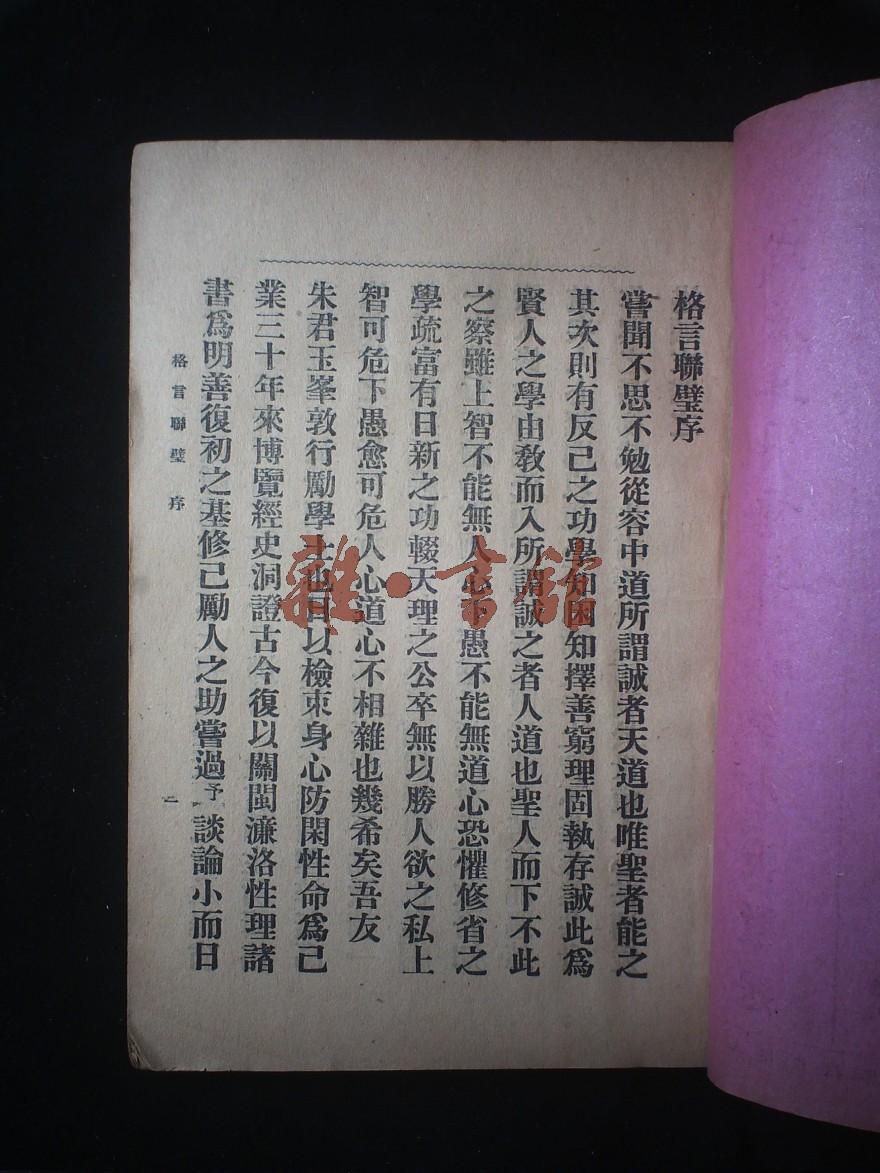 格言聯璧序
嘗聞不思不勉從容中道所謂誠者天道也唯聖者能之
其次則有反己之功學知困知擇善窮理固執存誠此爲
賢人之學由敎而入所謂誠之者人道也聖人而下不此
之察雖上智不能無人心下愚不能無道心恐懼修省之
學疏富有日新之功輟天理之公卒無以勝人欲之私上
智可危下愚愈可危人心道心不相雜也幾希矣吾友
朱君玉峯敦行勵學士也日以檢束身心防閑性命爲己
業三十年來博覽經史洞證古今復以關閩濂洛性理諸
書爲明善復初之基修己勵人之助嘗過予談論小而日
格言聯璧 序
二
雜·書館